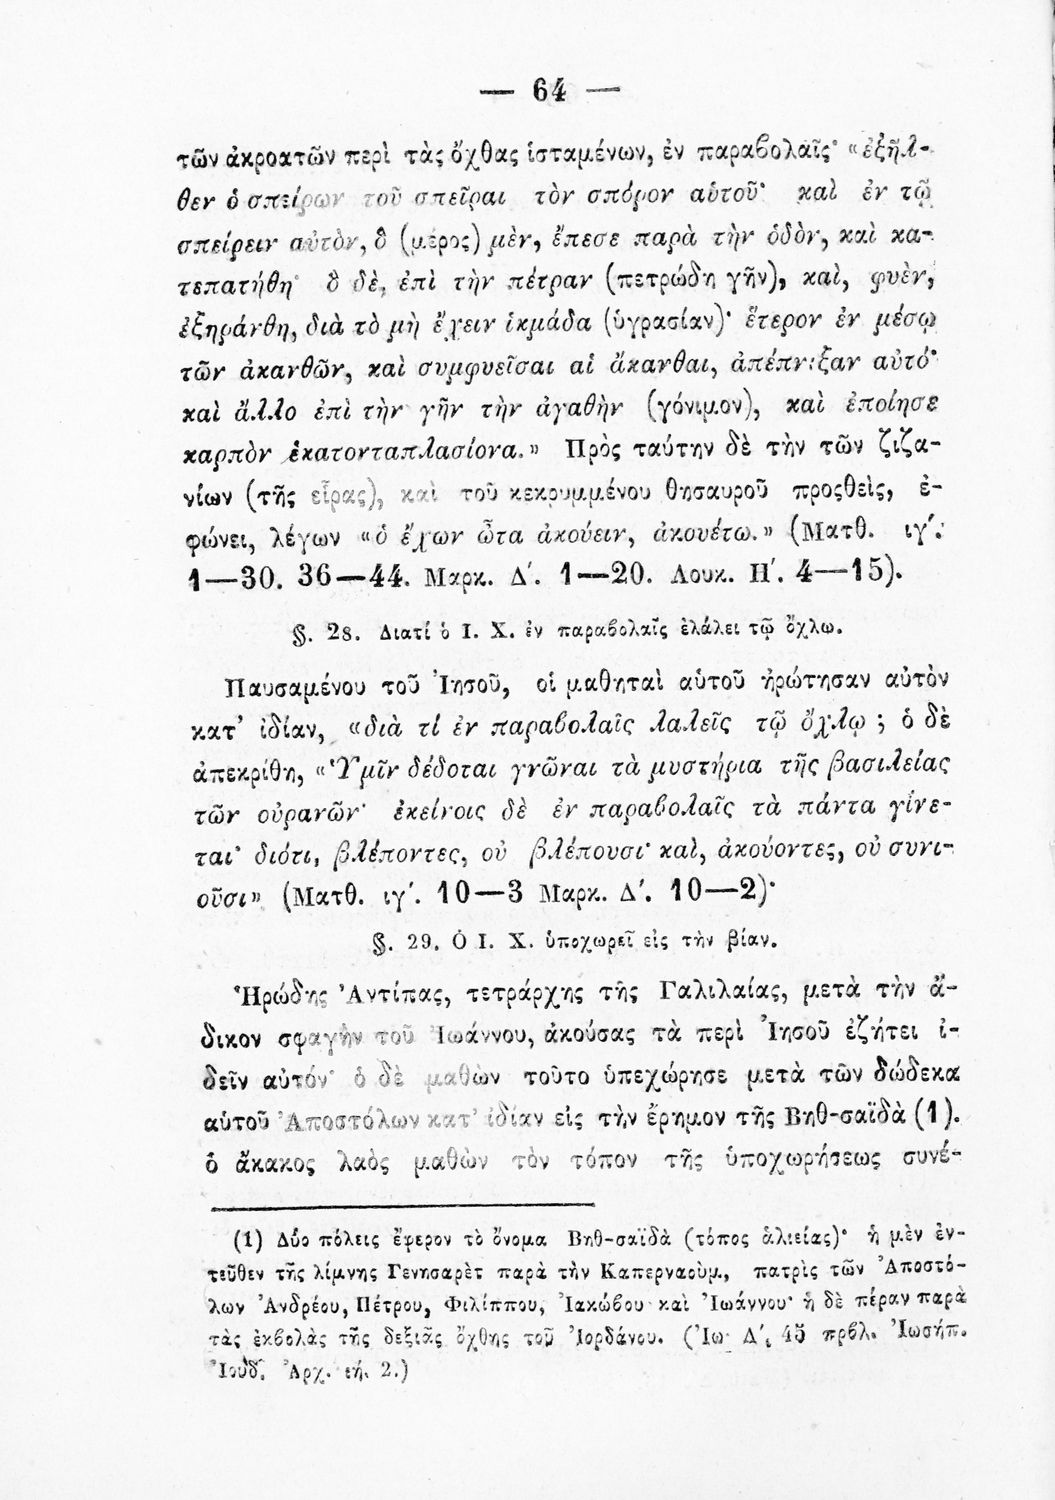 — 64 —
τῶν ἀκροατῶν περὶ τὰς ὄχθας ἱσταμένων, ἐν παραβολαῖς· «ἐξῆλ-
θεν ὁ σπείρων τοῦ σπεῖραι τὸν σπόρον αὑτοῦ· καὶ ἐν τῷ
σπείρειν αὐτὸν, ὃ (μέρος) μὲν, ἔπεσε παρὰ τὴν ὁδὸν, καὶ κα-
τεπατήθη· ὃ δὲ, ἐπὶ τὴν πέτραν (πετρώδη γῆν), καὶ, φυὲν,
ἐξηράνθη, διὰ τὸ μὴ ἔχειν ἱκμάδα (ὑγρασίαν)· ἕτερον ἐν μέσῳ
τῶν ἀκανθῶν, καὶ συμφυεῖσαι αἱ ἄκανθαι, ἀπέπνιξαν αὐτό·
καὶ ἄλλο ἐπὶ τὴν γῆν τὴν ἀγαθὴν (γόνιμον), καὶ ἐποίησε
καρπὸν ἑκατονταπλασίονα.» Πρὸς ταύτην δὲ τὴν τῶν ζιζα-
νίων (τῆς εἴρας), καὶ τοῦ κεκρυμμένου θησαυροῦ προςθεὶς, ἐ-
φώνει, λέγων «ὁ ἔχων ὦτα ἀκούειν, ἀκουέτω.» (Ματθ. ιγ΄.
1—30. 36—44. Μαρκ. Δ΄. 1—20. Λουκ. Η΄. 4—15).
§. 28. Διατί ὁ Ι. Χ. ἐν παραβολαῖς ἐλάλει τῷ ὄχλω.
Παυσαμένου τοῦ Ἰησοῦ, οἱ μαθηταὶ αὑτοῦ ἠρώτησαν αὐτὸν
κατ' ἰδίαν, «διὰ τί ἐν παραβολαῖς λαλεῖς τῷ ὄχλῳ ; ὁ δὲ
ἀπεκρίθη, «Ὑμῖν δέδοται γνῶναι τὰ μυστήρια τῆς βασιλείας
τῶν οὐρανῶν· ἐκείνοις δὲ ἐν παραβολαῖς τὰ πάντα γίνε-
ται· διότι, βλέποντες, οὐ βλέπουσι· καὶ, ἀκούοντες, οὐ συνι-
οῦσι» (Ματθ. ιγ΄. 10—3 Μαρκ. Δ΄. 10—2)·
§. 29. Ὁ Ι. Χ. ὑποχωρεῖ εἰς τὴν βίαν.
Ἡρώδης Ἀντίπας, τετράρχης τῆς Γαλιλαίας, μετὰ τὴν ἄ-
δικον σφαγὴν τοῦ Ἰωάννου, ἀκούσας τὰ περὶ Ἰησοῦ ἐζήτει ἰ-
δεῖν αὐτόν· ὁ δὲ μαθὼν τοῦτο ὑπεχώρησε μετὰ τῶν δώδεκα
αὑτοῦ Ἀποστόλων κατ' ἰδίαν εἰς τὴν ἔρημον τῆς Βηθ-σαϊδὰ (1).
ὁ ἄκακος λαὸς μαθὼν τὸν τόπον τῆς ὑποχωρήσεως συνέ-
(1) Δύο πόλεις ἔφερον τὸ ὄνομα Βηθ-σαϊδὰ (τόπος ἁλιείας)· ἡ μὲν ἐν-
τεῦθεν τῆς λίμνης Γενησαρὲτ παρὰ τὴν Καπερναοὺμ., πατρὶς τῶν Ἀποστό-
λων Ἀνδρέου, Πέτρου, Φιλίππου, Ἰακώβου καὶ Ἰωάννου· ἡ δὲ πέραν παρὰ
τὰς ἐκβολὰς τῆς δεξιᾶς ὄχθης τοῦ Ἰορδάνου. (Ἰω· Δ΄, 45 πρβλ. Ἰωσήπ.
Ἰουδ. Ἀρχ. ιή. 2.)